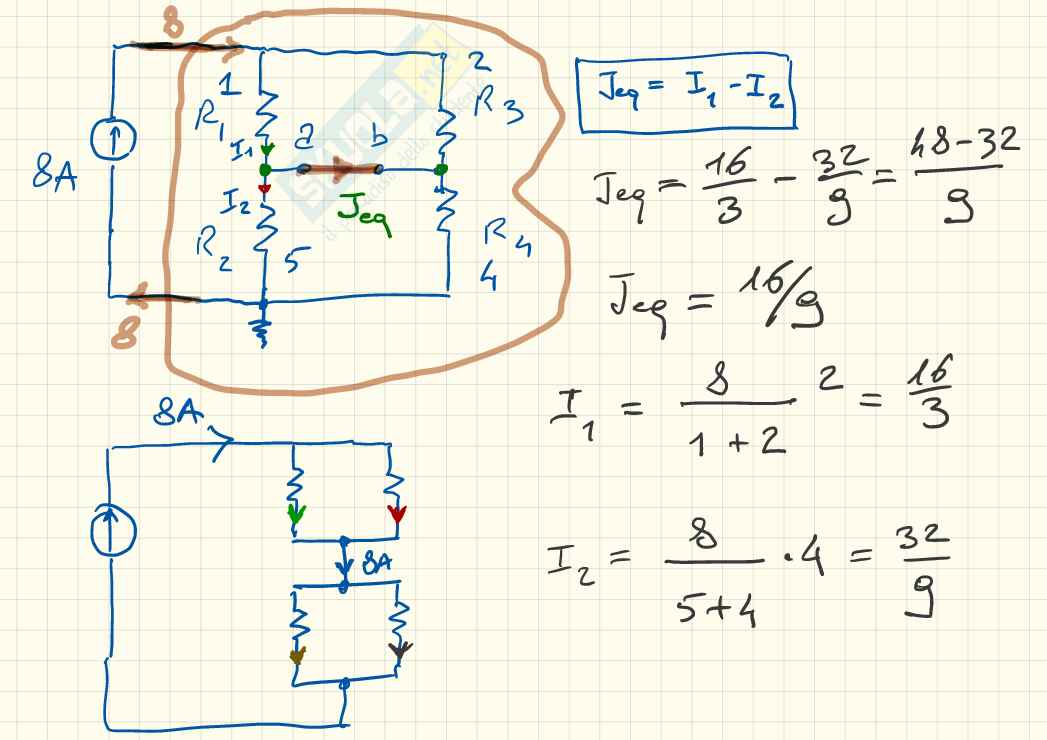 8
1
2
R1
R3
I1
a
b
8A
I2
Jeq
R2
5
R4
4
8
Jeq = I1 - I2
Jeq = 16/3 - 32/9 = 48-32/9
Jeq = 16/9
I1 = 8/1+2 2 = 16/3
I2 = 8/5+4 · 4 = 32/9
8A
8A